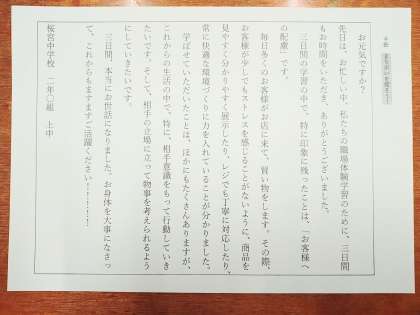 お元気ですか？
先日は、お忙しい中、私たちの職場体験学習のために、三日間
もお時間をいただき、ありがとうございました。
三日間の学習の中で、特に印象に残ったことは、「お客様へ
の配慮」です。
毎日多くのお客様がお店に来て、買い物をします。その際、
お客様が少しでもストレスを感じることがないように、商品を
見やすく分かりやすく展示したり、レジでも丁寧に対応したり、
常に快適な環境づくりに力を入れていることが分かりました。
学ばせていただいたことは、ほかにもたくさんありますが、
これからの生活の中で、特に、相手意識をもって行動していき
たいです。そして、相手の立場に立って物事を考えられるよう
にしていきたいです。
三日間、本当にお世話になりました。お身体を大事になさっ
て、これからもますますご活躍ください！！！！！！
桜宮中学校　二年〇組　上中